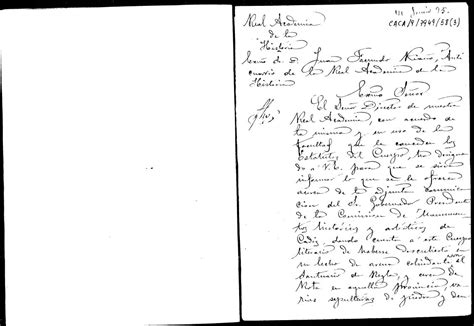 CACA/9/7949/58(3)
Real Academia
de la
Historia
Exmo Sr. D. Juan Facundo Riaño, Anti
cuario de la Real Academia de la
Historia
Exmo Señor
El Señor Director de nuestra
Real Academia, con acuerdo de
la misma y en uso de la
facultad que le conceden los
Estatutos del Cuerpo, ha designa
do a V.E. para que se sirva
informar lo que se le ofrezca
acerca de la adjunta comunica
cion del Sr. Gobernador Presidente
de la Comision de Monumen
tos históricos y artísticos de
Cadiz, dando cuenta a este Cuerpo
literario de haberse descubierto en
un lecho de arena colindante
Santuario de Regla, y cerca de
Rota en aquella provincia, va
rias sepulturas de piedra y den